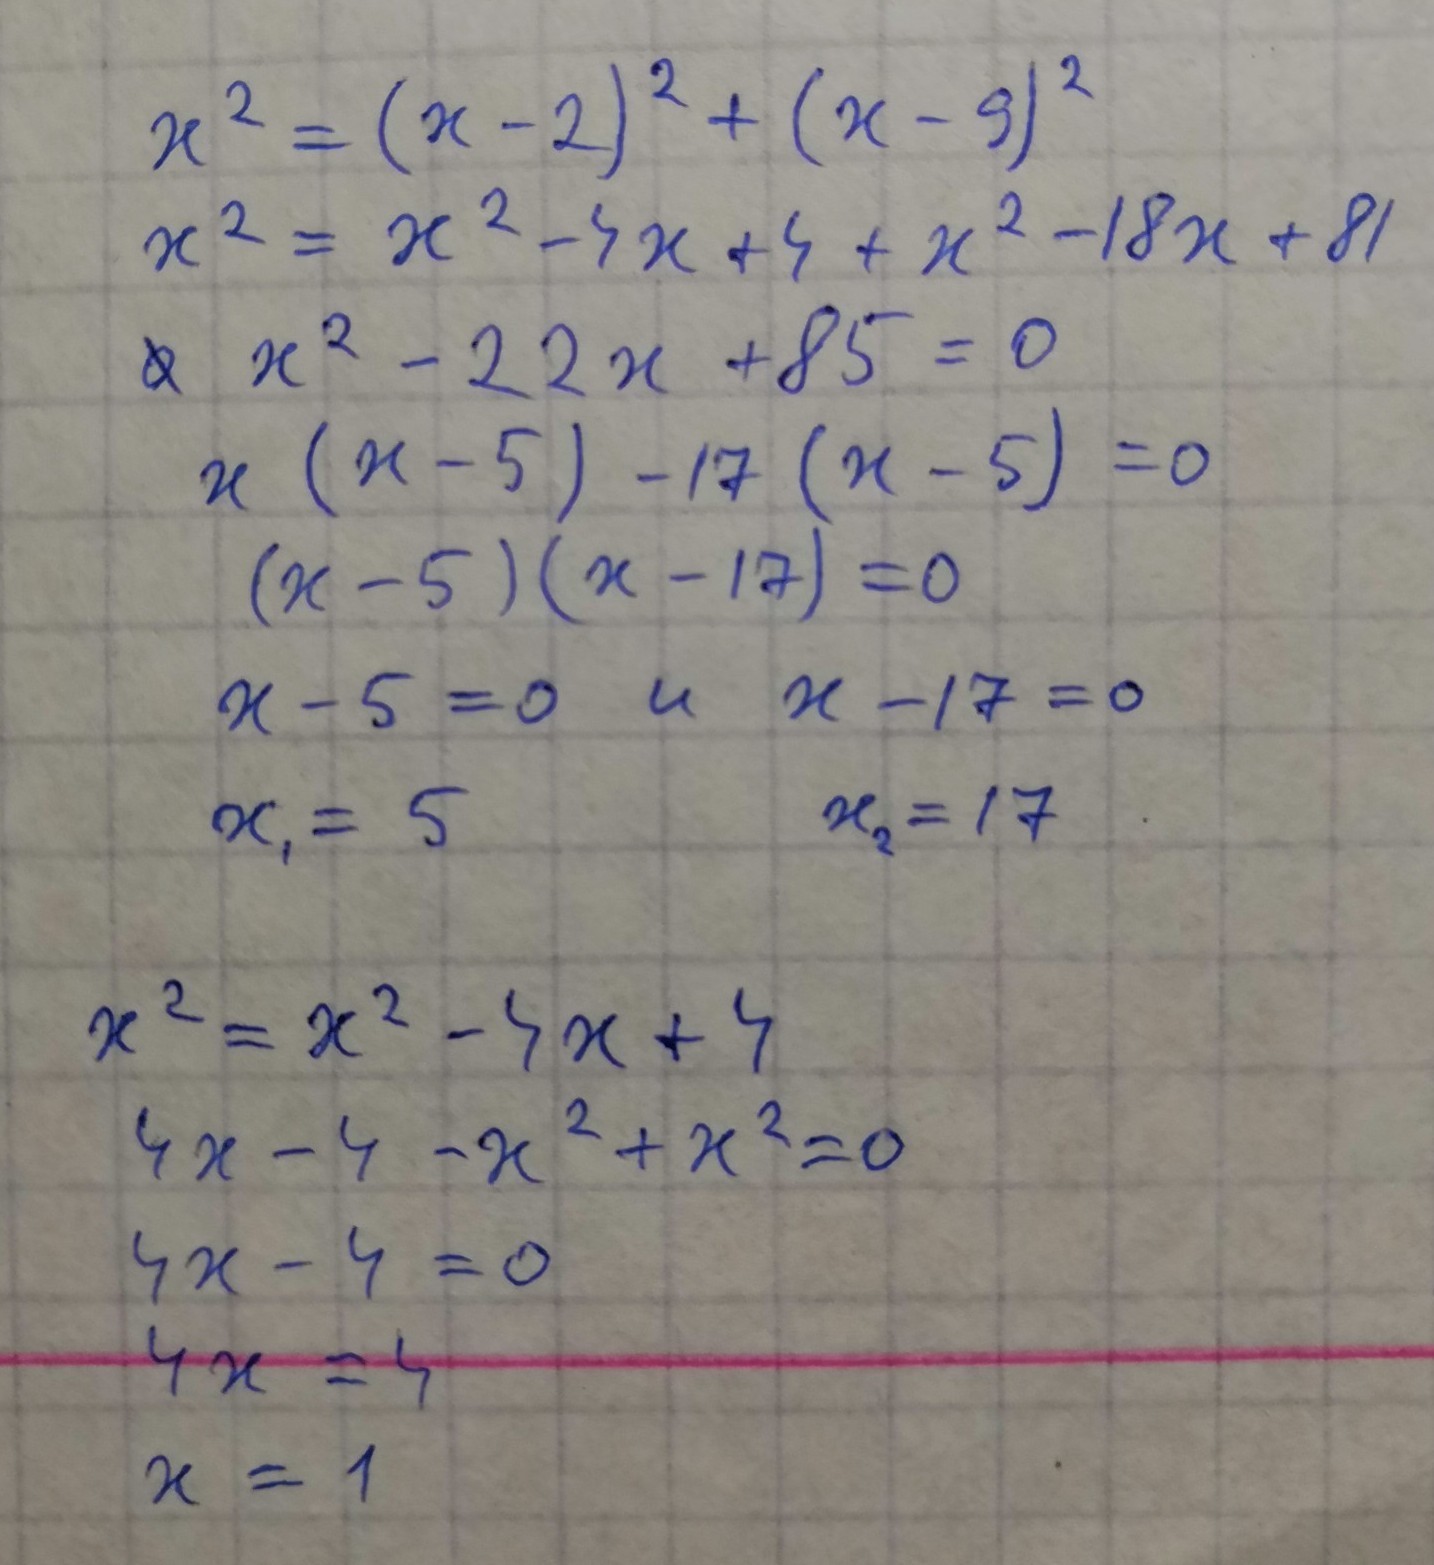 x² = (x - 2)² + (x - 9)²
x² = x² - 4x + 4 + x² - 18x + 81
x² - 22x + 85 = 0
x (x - 5) - 17 (x - 5) = 0
(x - 5)(x - 17) = 0
x - 5 = 0 и x - 17 = 0
x₁ = 5 x₂ = 17
x² = x² - 4x + 4
4x - 4 - x² + x² = 0
4x - 4 = 0
4x = 4
x = 1